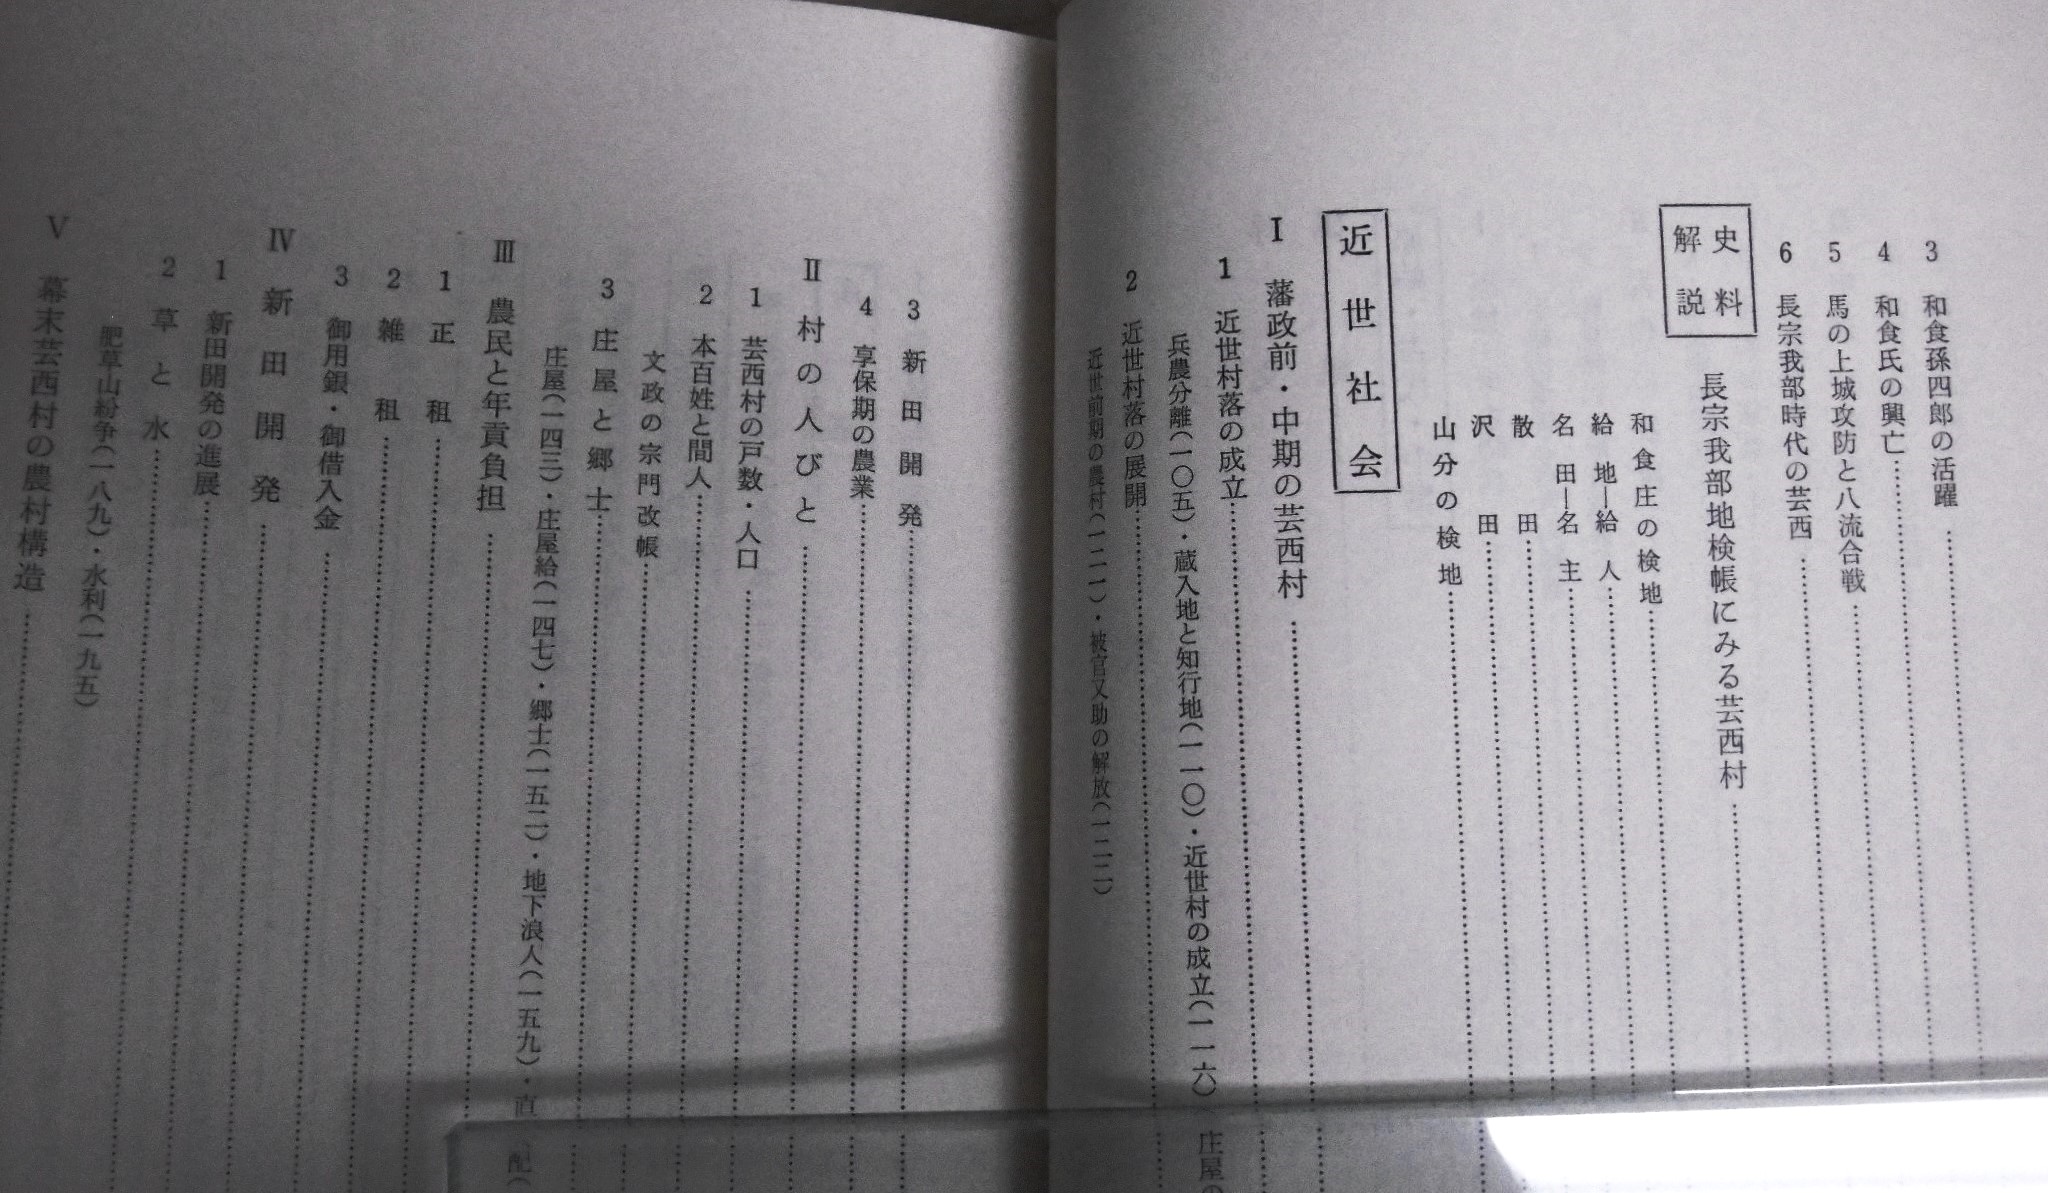 3 和食孫四郎の活躍
4 和食氏の興亡
5 馬の上城攻防と八流合戦
6 長宗我部時代の芸西
史料解説 長宗我部地検帳にみる芸西村
和食庄の検地
給地―給人
名田―名主
散田
沢田
山分の検地
近世社会
Ⅰ 藩政前・中期の芸西村
1 近世村落の成立
兵農分離(一〇五)・蔵入地と知行地(一一〇)・近世村の成立(一一六) 庄屋の
2 近世村落の展開
近世前期の農村(一二一)・被官又助の解放(一二二)
3 新田開発
4 享保期の農業
Ⅱ 村の人びと
1 芸西村の戸数・人口
2 本百姓と間人
文政の宗門改帳
3 庄屋と郷士
庄屋(一四三)・庄屋給(一四七)・郷士(一五二)・地下浪人(一五九)・直 配(
Ⅲ 農民と年貢負担
1 正租
2 雑租
3 御用銀・御借入金
Ⅳ 新田開発
1 新田開発の進展
2 草と水
肥草山紛争(一八九)・水利(一九五)
Ⅴ 幕末芸西村の農村構造